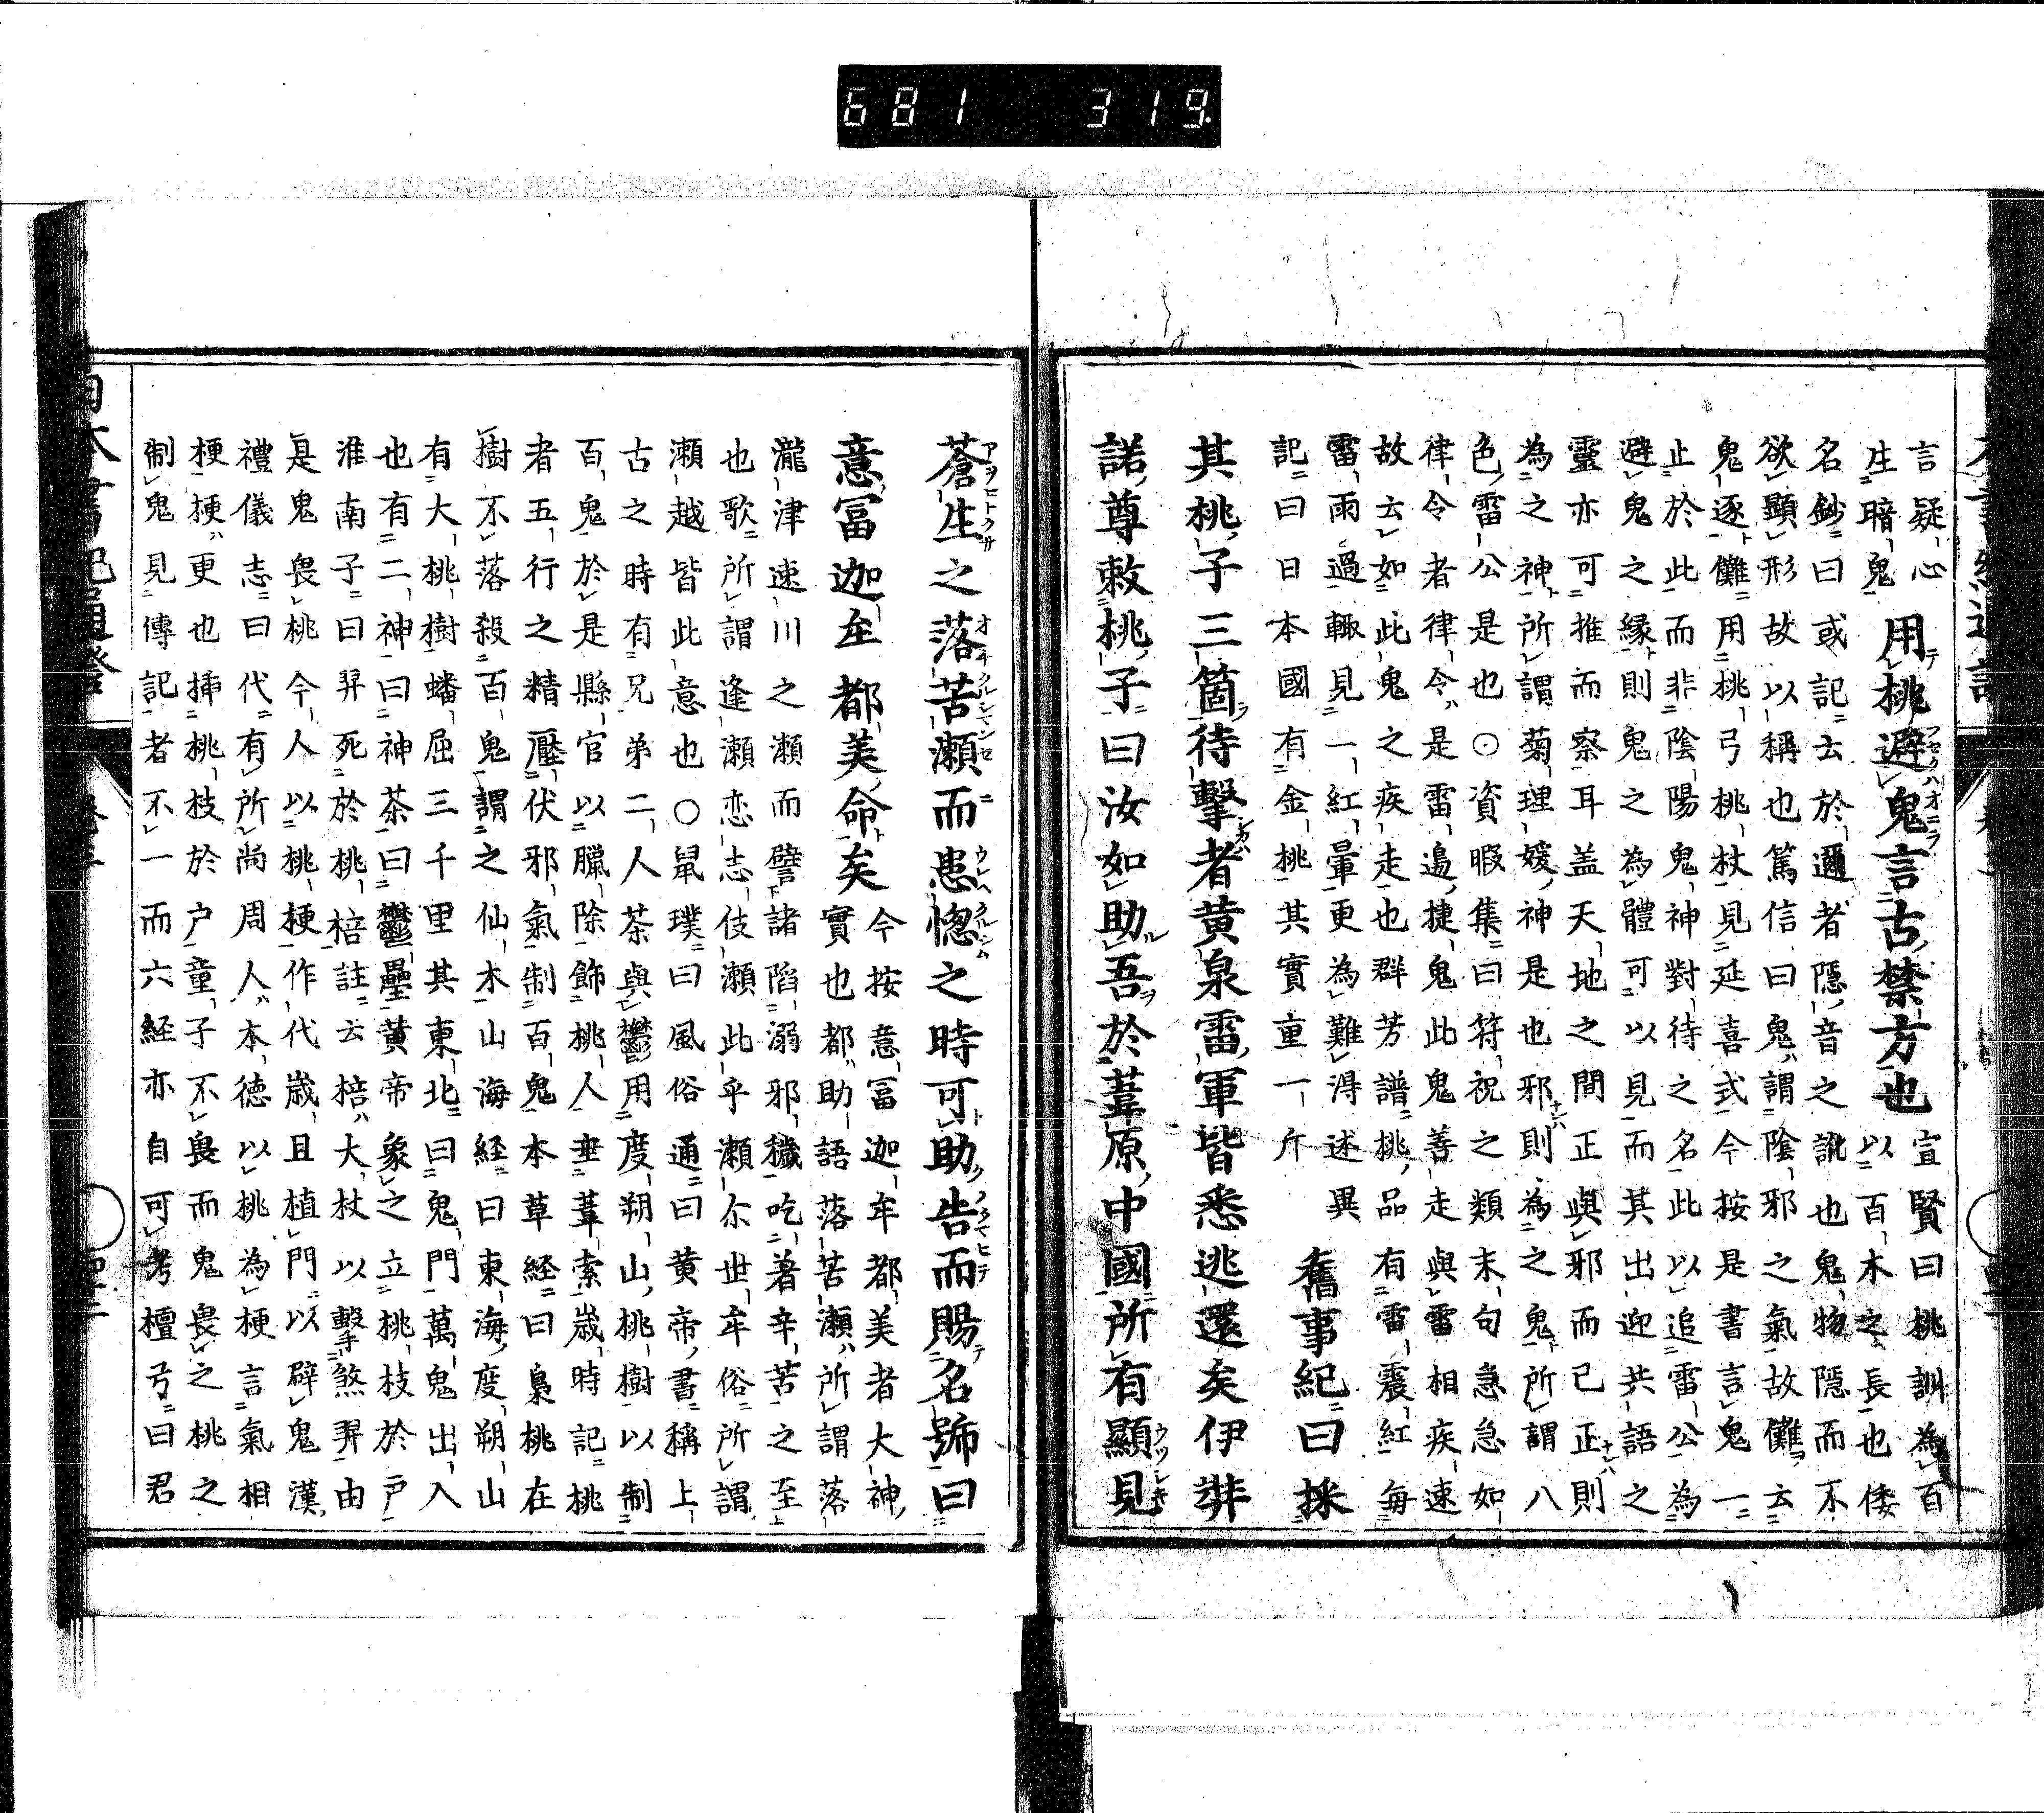 681 319
言疑心宣賢曰桃訓為百
生暗鬼用桃避鬼言古禁方也以百木之長也倭
名鈔曰或記云於邇者隠音之訛也鬼物隠而不
欲顯形故以稱也篤信曰鬼謂陰邪之氣故儺云
鬼逐儺用桃弓桃杖見延喜式今按是書言鬼一
止於此而非陰陽鬼神對待之名此以追雷公為
避鬼之縁則鬼之為體可以見而其出迎共語之
靈亦可推而察耳盖天地之間正與邪而已正則
為之神所謂菊理媛神是也邪則為之鬼所謂八
色雷公是也○資暇集曰符祝之類末句急急如
律令者律令是雷邉捷鬼此鬼善走與雷相疾速
故云如此鬼之疾走也群芳譜桃品有雷震紅毎
雷雨過輙見一紅暈更為難淂述異
記曰日本國有金桃其實重一斤
舊事紀曰採
其桃子三箇待擊者黄泉雷軍皆悉逃還矣伊弉
諾尊敕桃子曰汝如助吾於葦原中國所有顯見
蒼生之落苦瀬而患惚之時可助告而賜名号曰
意冨迦牟都美命矣今按意冨迦牟都美者大神
實也都助語落苦瀬所謂落
瀧津速川之瀬而譬諸陷溺邪穢吃著辛苦之至
也歌所謂逢瀬恋志伎瀬此乎瀬尓世牟俗所謂
瀬越皆此意也○鼠璞曰風俗通曰黄帝書稱上
古之時有兄弟二人荼與鬱用度朔山桃樹以制
百鬼於是縣官以臘除飾桃人垂葦索歳時記桃
者五行之精壓伏邪氣制百鬼本草経曰梟桃在
樹不落殺百鬼謂之仙木山海経曰東海度朔山
有大桃樹蟠屈三千里其東北曰鬼門萬鬼出入
也有二神曰神荼曰鬱壘黄帝象之立桃枝於戸
淮南子曰羿死於桃棓註云棓大杖以擊煞羿由
是鬼畏桃今人以桃梗作代歳且植門以辟鬼漢
禮儀志曰代有所尚周人木徳以桃為梗言氣相
梗梗更也挿桃枝於戸童子不畏而鬼畏之桃之
制鬼見傳記者不一而六経亦自可考檀弓曰君